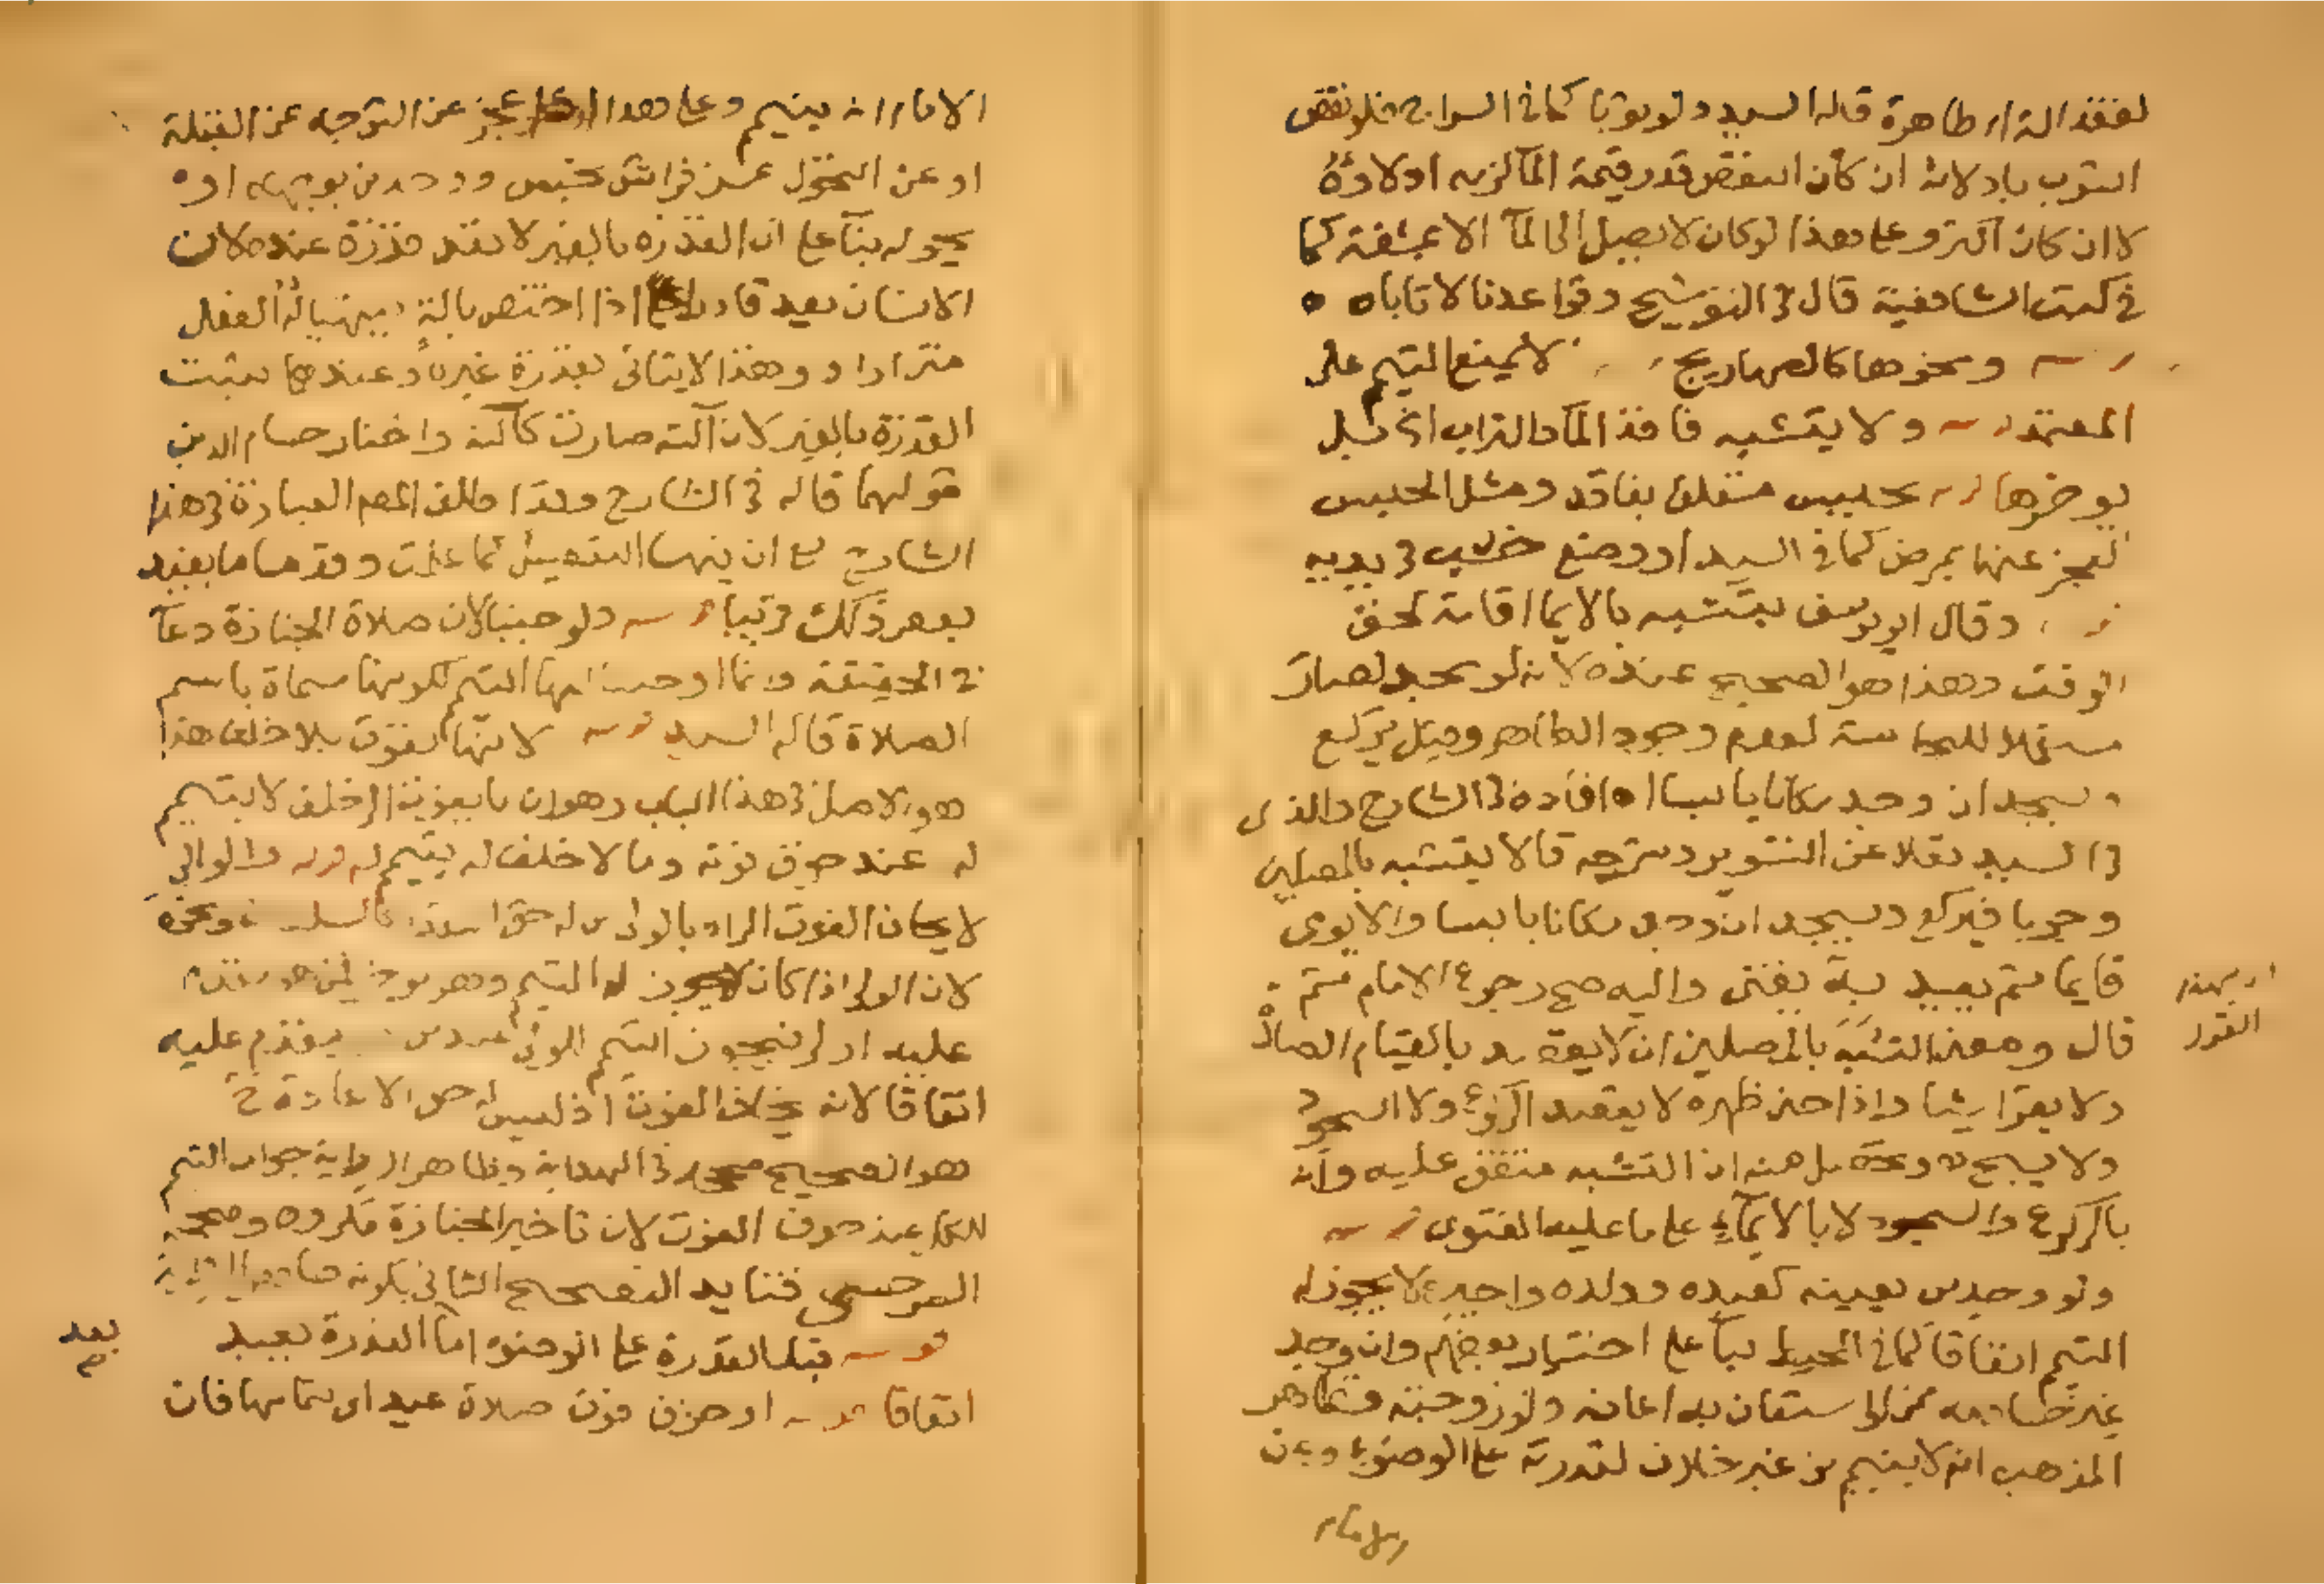 لفقد آلة طاهرة قاله السيد ولو ثوبا كما في السراج فلو نقص
الثوب بادلائه ان كان النقص قدر قيمة الماء لزمه ادلاؤه
لا ان كان اكثر وعلى هذا لو كان لا يصل الى الماء الا بمشقة كما
في كتب الشافعية قال في التوشيح وقواعدنا لا تاباه
ونحوها كالصهاريج لا يمنع التيمم على
المعتمد ولا يتشبه فاقد الماء والتراب اى قبل
يوخرها بحبس متعلق بفاقد ومثل الحبس
العجز عنهما بمرض كما في السيد او وضع خشب في يديه
وقال ابو يوسف يتشبه بالايما اقامة لحق
الوقت وهذا هو الصحيح عنده لانه لو سجد لصار
مستعملا للنجاسة لعدم وجود الطاهر وقيل يركع
ويسجد ان وجد مكانا يابسا اه افاده في الشارح والذى
في السيد نقلا عن التنوير وشرحه قالا يتشبه بالمصلين
وجوبا فيركع ويسجد ان وجد مكانا يابسا والا يومى
قايما ثم يعيد به يفتى واليه صح رجوع الامام ثم
قال ومعنى التشبه بالمصلين ان لا يقصد بالقيام الصلاة
ولا يقرا شيئا واذا حنى ظهره لا يقصد الركوع ولا السجود
ولا يسبح ونحوه بل هنه ان التشبه متفق عليه وانه
بالركوع والسجود لا بالايماء على ما عليه الفتوى
ولو وجد من يعينه كعبده وولده واجيره لا يجوز له
التيمم اتفاقا كما في المحيط بناء على اختيار بعضهم وان وجد
غير خادمه من لو استعان به اعانه ولو زوجته فظاهر
المذهب انه لا يتيمم من غير خلاف لقدرته على الوضوء وعن
الامام
القول
الامام انه يتيمم وعلى هذا عجز عن التوجه عن القبلة
او عن التحول عن فراش نجس ووجد من يوجهه او
يحوله بناء على ان القدرة بالغير لا تعد قدرة عنده لان
الانسان يعد قادرا اذا اختص بالة يتهيا له الفعل
متى اراد وهذا لا يتاتى بقدرة غيره وعندهما تثبت
القدرة بالغير لان آلته صارت كآلته واختار حسام الدين
قولهما قاله في الشارح وقد اطلق المص العبارة في هذا
الشارح مع ان فيها التفصيل كما علمت وقدمنا ما يفيد
بعض ذلك قريبا ولو جنبا لان صلاة الجنازة دعاء
في الحقيقة وانما اوجبنا لها التيمم لكونها مسماة باسم
الصلاة قاله السيد لانها تفوت بلا خلف هذا
هو الاصل في هذا الباب وهو ان ما يفوت الى خلف لا يتيمم
له عند خوف فوته وما لا خلف له يتيمم له والوالى
لا يخاف الفوت المراد بالولى من له حق التقدم كالسلطان ونحوه
لان الولى اذا كان لا يجوز له التيمم وهو موخر فمن هو مقدم
عليه اولى فيجوز التيمم للولى عند من يقدم عليه
اتفاقا لانه يخاف الفوت اذ ليس له حق الاعادة ح
هو الصحيح صححه في الهداية وظاهر الرواية جواز التيمم
للكل عند خوف الفوت لان تاخير الجنازة مكروه وصححه
السرخسى فتايد التصحيح الثاني بكونه ظاهر الرواية
قبل القدرة على الوضوء اما القدرة يعيد
بعد
اتفاقا او خوف فوت صلاة عيد اى بتمامها فان